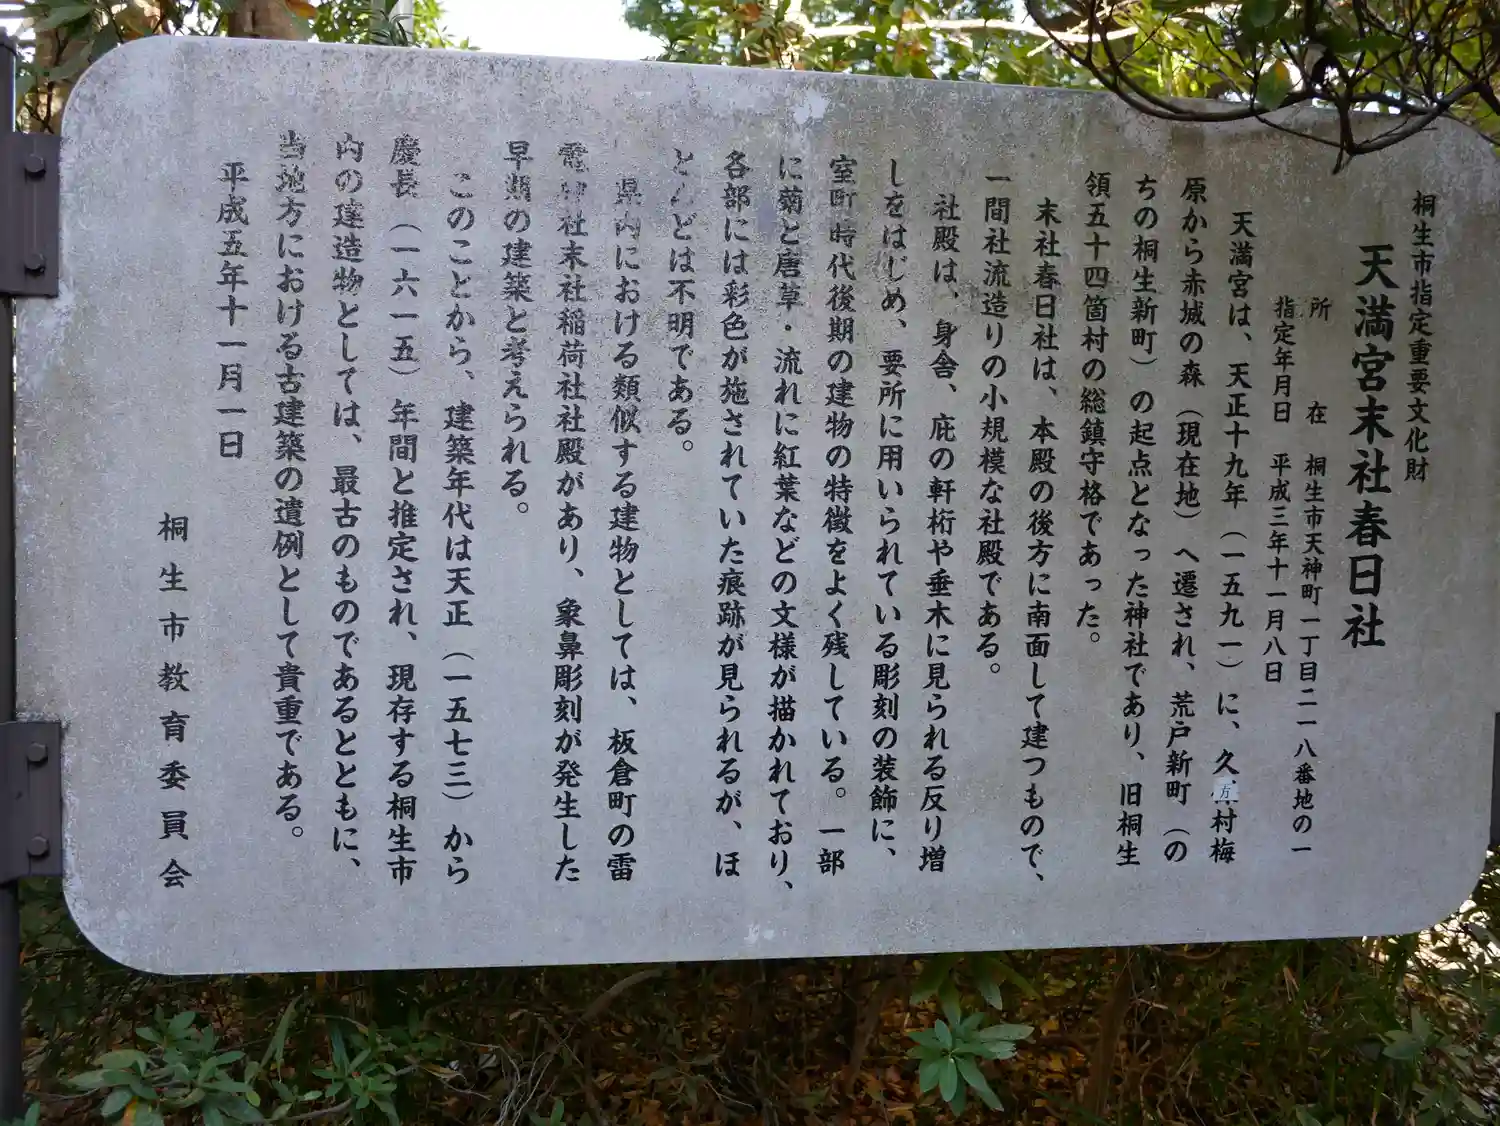 桐生市指定重要文化財
天満宮末社春日社
所　在　桐生市天神町一丁目二一八番地の一
指定年月日　平成三年十一月八日
天満宮は、天正十九年（一五九一）に、久方村梅
原から赤城の森（現在地）へ遷され、荒戸新町（の
ちの桐生新町）の起点となった神社であり、旧桐生
領五十四箇村の総鎮守格であった。
末社春日社は、本殿の後方に南面して建つもので、
一間社流造りの小規模な社殿である。
社殿は、身舎、庇の軒桁や垂木に見られる反り増
しをはじめ、要所に用いられている彫刻の装飾に、
室町時代後期の建物の特徴をよく残している。一部
に菊と唐草・流れに紅葉などの文様が描かれており、
各部には彩色が施されていた痕跡が見られるが、ほ
とんどは不明である。
県内における類似する建物としては、板倉町の雷
電神社末社稲荷社社殿があり、象鼻彫刻が発生した
早期の建築と考えられる。
このことから、建築年代は天正（一五七三）から
慶長（一六一五）年間と推定され、現存する桐生市
内の建造物としては、最古のものであるとともに、
当地方における古建築の遺例として貴重である。
平成五年十一月一日
桐生市教育委員会